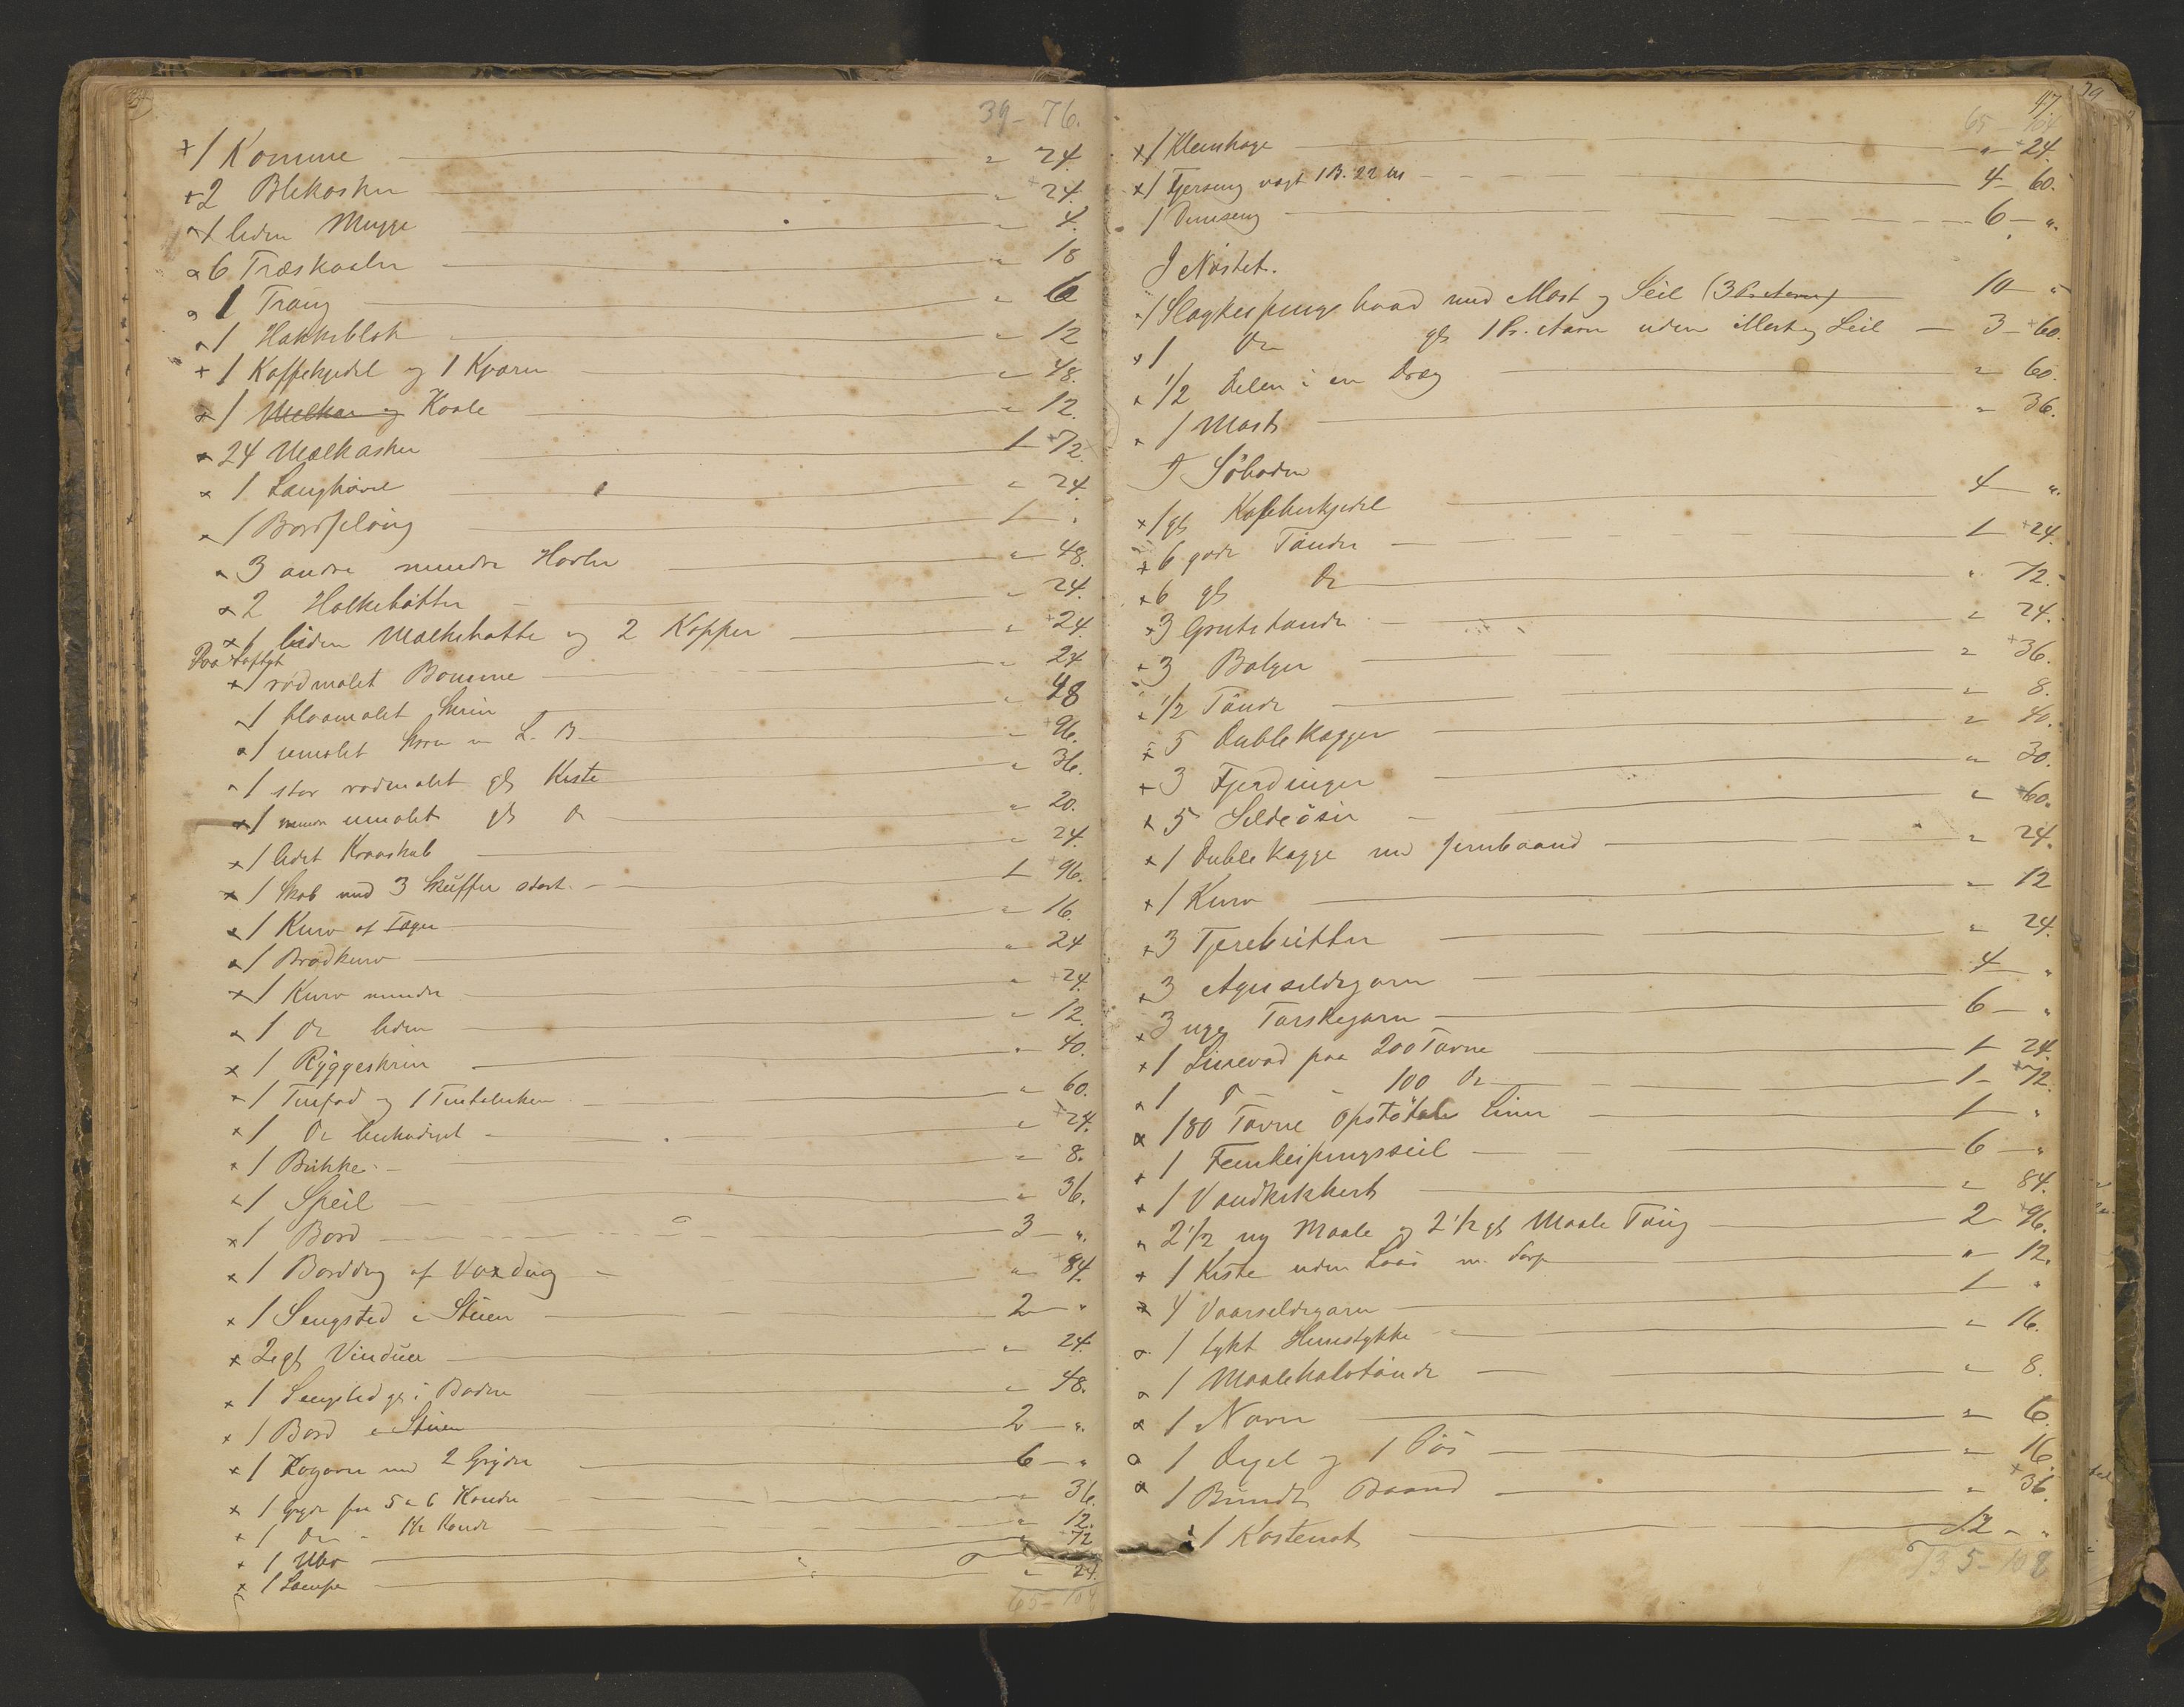 39 - 76.
+ 1 Komme " 24.
+ 2 Blikasker " 24.
1 liden Mugge " 4.
6 Træskaaler " 18
1 Traug " 6
1 Hakkeblok " 12
+ 1 Kaffekjedel og 1 Kværn " 48.
1 Kaale " 12.
24 Melkasker 1 - 72.
1 Langhövel " 24.
1 Bordplöug 1 - "
3 andre mindre Høvler " 48.
2 " 24.
liden og 2 Kopper " 24.
Paa Loftet
1 rödmalet Bomme " 24
1 blaamalet Skrin " 48
1 umalet L. B. " 96.
1 stor rødmalet gl Kiste " 36.
1 mindre umalet gl Do " 20.
1 lidet Kraaskab " 24.
1 Skab med 3 Skuffer stort 1 - 96.
1 Kurv af Tæger " 16.
1 Brödkurv " 24
1 Kurv mindre " 24.
1 Do liden " 12.
1 Ryggeskrin " 40.
1 Tinfad og 1 Tintalerken " 60.
1 Do beskadiget " 24.
1 Bukke " 8.
1 Speil " 36.
1 Bord 3 - "
1 Borddug af Voxdug " 84.
1 Sengsted i Stuen 2 - "
2 gl Vinduer " 24.
1 Sengsted gl i Boden " 48.
1 Bord i Stuen 2 - "
1 Kogovn med 2 Gryder 6 - "
1 Gryde paa 5 a 6 Kander " 36.
1 Do " 1½ Kande " 12.
1 Uhr " 72
1 Lampe " 24.
65 - 104
47.
65 - 104
1 Klemhage " 24.
1 Fjerseng vægt 1 B. 22 4 - 60.
1 Duunseng 6 - "
I Nöstet.
1 med Mast og Seil 10 - "
1 Do gl 1 Pr. Aarer uden Mast og Seil 3 - 60.
1/2 Delen i en Dræg " 60.
1 Mast " 36.
I Söboden
1 gl Kobberkjedel 4 - "
6 gode Tönder 1 - 24.
6 gl Do " 72.
3 " 24.
3 Balger " 36.
1/2 Tönde " 8.
5 Dublekagger " 40.
3 Fjerdinger " 30.
5 Sildeöser " 60.
1 Dublekagge med Jernbaand " 24.
1 Kurv " 12
3 Tjærebütter " 24.
3 Agnsildegarn 4 - "
3 nye Torskegarn 6 - "
1 Linevad paa 200 Favne 1 - 24.
1 100 Do 1 - 72.
180 Favne Liner 1 - "
1 Femkeipungsseil 6 - "
1 Vandkikkert " 84.
2 1/2 ny Maale og 2 1/2 gl Maale Toug 2 - 96.
1 Kiste uden Laas " 12.
4 Vaarsildegarn 1 - "
1 tykt " 16.
1 Maalehalvtönde " 8.
1 Naver " 6.
1 Degel og 1 " 16.
1 Bundt Baand " 36.
1 Kastenot 12 - "
135 - 108